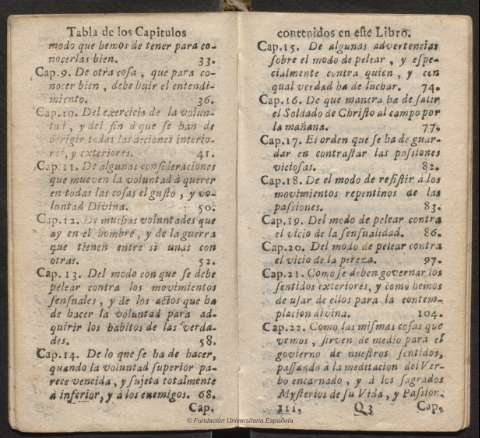 Tabla de los Capitulos
modo que hemos de tener para co-
nocerlas bien. 33.
Cap. 9. De otra cosa, que para co-
nocer bien, debe huir el entendi-
miento. 36.
Cap. 10. Del exercicio de la volun-
tad, y del fin à que se han de
dirigir todas las acciones interio-
res, y exteriores. 41.
Cap. 11. De algunas consideraciones
que mueven la voluntad à querer
en todas las cosas el gusto, y vo-
luntad Divina. 50.
Cap. 12. De muchas voluntades que
ay en el hombre, y de la guerra
que tienen entre si unas con
otras. 52.
Cap. 13. Del modo con que se debe
pelear contra los movimientos
sensuales, y de los actos que ha
de hacer la voluntad para ad-
quirir los habitos de las verda-
des. 58.
Cap. 14. De lo que se ha de hacer,
quando la voluntad superior pa-
rece vencida, y sujeta totalmente
à inferior, y à los enemigos. 68.
Cap.
contenidos en este Libro.
Cap. 15. De algunas advertencias
sobre el modo de pelear, y espe-
cialmente contra quien, y con
qual verdad ha de luchar. 74.
Cap. 16. De que manera ha de salir
el Soldado de Christo al campo por
la mañana. 77.
Cap. 17. El orden que se ha de guar-
dar en contrastar las passiones
viciosas. 82.
Cap. 18. De el modo de resistir à los
movimientos repentinos de las
passiones. 83.
Cap. 19. Del modo de pelear contra
el vicio de la sensualidad. 86.
Cap. 20. Del modo de pelear contra
el vicio de la pereza. 97.
Cap. 21. Como se deben governar los
sentidos exteriores, y como hemos
de usar de ellos para la contem-
placion divina. 104.
Cap. 22. Como las mismas cosas que
vemos, sirven de medio para el
govierno de nuestros sentidos,
passando à la meditacion del Ver-
bo encarnado, y à los sagrados
Mysterios de su Vida, y Passion.
111. Q3 Cap.
© Fundación Universitaria Española